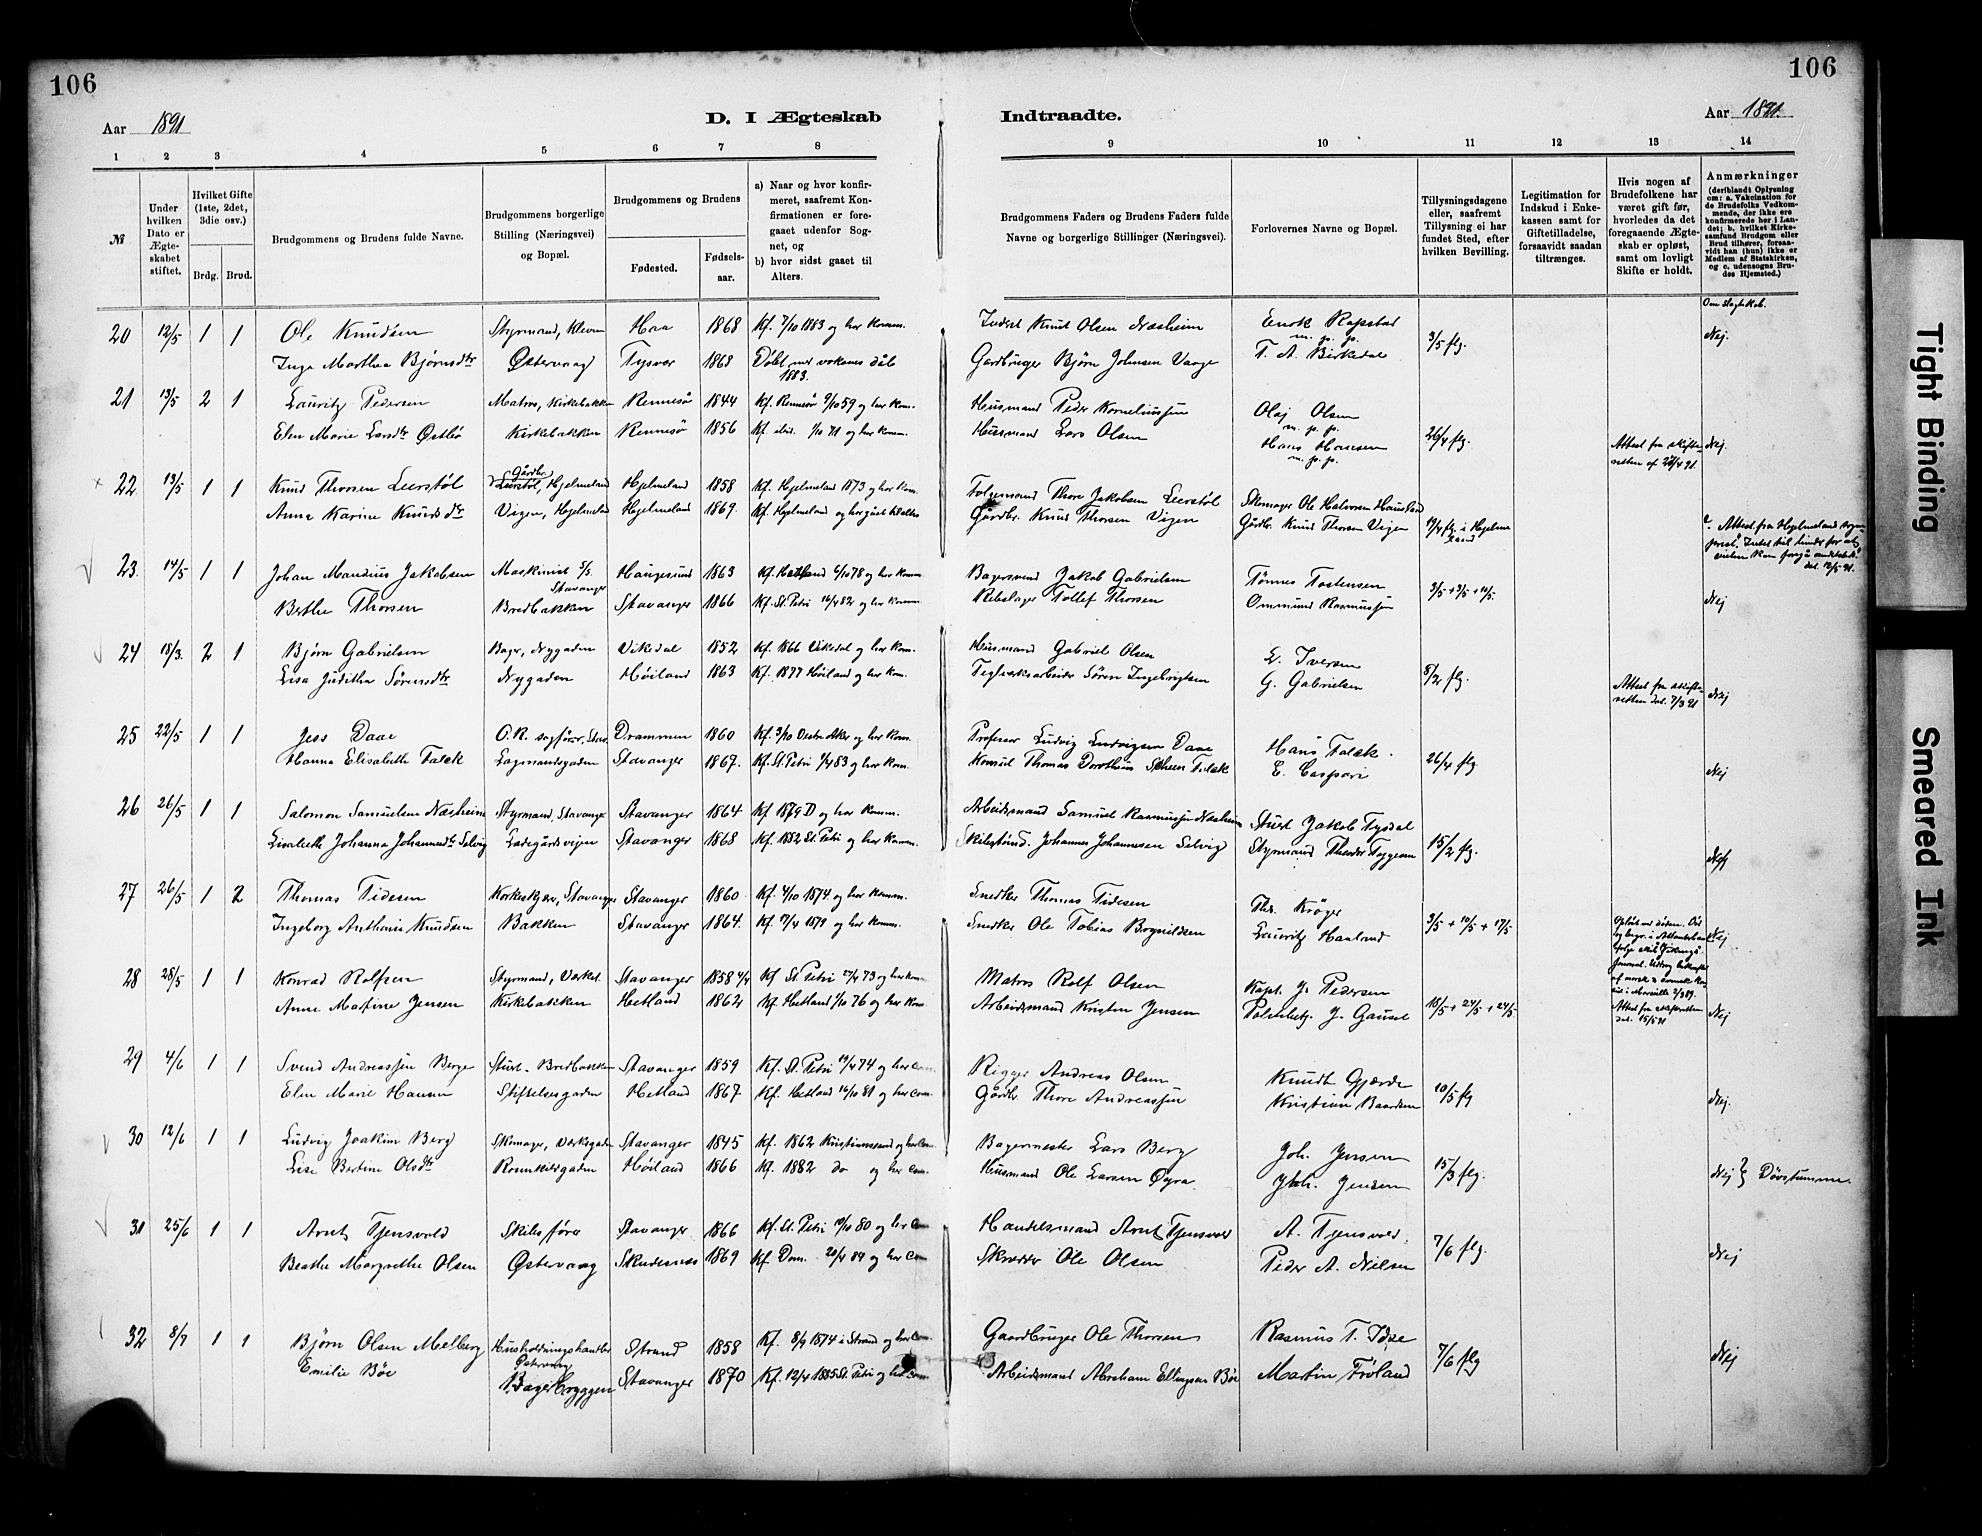 106
106
Aar 1891
D. I Ægteskab
Indtraadte.
Aar 1891.
1 2 3 4 5 6 7 8
9 10 11 12 13 14
№
Under hvilken Dato er Ægteskabet stiftet.
Hvilket Gifte (1ste, 2det, 3die osv.)
Brdg. Brud.
Brudgommens og Brudens fulde Navne.
Brudgommens borgerlige Stilling (Næringsvei) og Bopæl.
Brudgommens og Brudens
Fødested.
Fødselsaar.
a) Naar og hvor konfirmeret, saafremt Konfirmationen er foregaaet udenfor Sognet, og
b) hvor sidst gaaet til Alters.
Brudgommens Faders og Brudens Faders fulde Navne og borgerlige Stillinger (Næringsvei).
Forlovernes Navne og Bopæl.
Tillysningsdagene eller, saafremt Tillysning ei har fundet Sted, efter hvilken Bevilling.
Legitimation for Indskud i Enkekassen samt for Giftetilladelse, forsaavidt saadan tiltrænges.
Hvis nogen af Brudefolkene har været gift før, hvorledes da det foregaaende Ægteskab er opløst, samt om lovligt Skifte er holdt.
Anmærkninger
(deriblandt Oplysning om: a. Vakcination for de Brudefolks Vedkommende, der ikke ere konfirmerede her i Landet; b. hvilket Kirkesamfund Brudgom eller Brud tilhører, forsaavidt han (hun) ikke er Medlem af Statskirken, og c. udensogns Brudes Hjemsted.)
Om slægtskab.
20 12/5 1 1 Ole Knudsen Styrmand, Kleven Haa 1868 Kf. 7/10 1883 og her komm. Knut Olsen Næsheim Enok Rapstad m. p. p. 3/5 flg. Nej.
Inga Marthea Bjørnsdtr Østervaag Tysvær 1868 Døbt med voksnes dåb 1883. Gardbruger Bjørn Johnsen Vaage T. A. Birkedal
21 13/5 2 1 Lauritz Pedersen Matros, Kirkebakken Rennesø 1844 Kf. Rennesø 9/10 59 og her kom. Husmand Peder Korneliussen Olaj Olsen m. p. p. 26/4 flg.
Elen Marie Larsdtr Østbø Kirkebakken Rennesø 1856 Kf. ibid. 1/10 71 og her komm. Husmand Lars Olsen Hans Hansen m. p. p. Attest fra skifteretten af 28/4 91. Nej.
22 13/5 1 1 Knud Thorsen Leerstøl Gårdbr. Leerstøl, Hjelmeland Hjelmeland 1858 Kf. Hjelmeland 1873 og her kom. Thore Jakobsen Leerstøl Skomager Ole Halvorsen
Anna Karine Knudsdtr Vigen, Hjelmeland Hjelmeland 1869. Kf. Hjelmeland og her gået til alters Gårdbr. Knud Thorsen Vigen Gårdbr. Knud Thorsen Vigen 19/4 flg. i Hjelmeland Attest fra Hjelmelands sogneprest. Intet til hinder for at vielsen kan foregå andetsteds. dat. 12/5 91.
23. 14/5 1 1 Johan Mandius Jakobsen Maskinist S/S. Stavanger Haugesund 1863 Kf. Hetland 6/10 78 og her kom. Bagersvend Jakob Gabrielsen Tønnes Tostensen 3/5 + 3/5 + 14/5.
Berthe Thorsen Bredbakken Stavanger 1866 Kf. St. Petri 16/4 82 og her komm. Rebslager Tollef Thorsen Ommund Rasmussen Nej
24 18/3. 2 1 Bjørn Gabrielsen Bager, Nygaden Vikedal 1852 Kf. 1866 Vikedal og her kom. Husmand Gabriel Olsen L. Iversen 8/2 flg.
Lisa Juditha Sørensdtr Nygaden Høiland 1863 Kf. 1877 Høiland og her kom. Teglverksarbeider Søren Ingebrigtsen G. Gabrielsen Attest fra skifteretten dat. 7/3 91 Nej
25 22/5 1 1 Jess Daae O.R. sagfører, Stav. Drammen 1860 Kf. 3/10 Vestre Aker og her kom. Professor Ludvig Ludvigsen Daae Hans Falck. 26/4 flg
Hanna Elisabeth Falck Lagmandsgaden Stavanger 1867. Kf. St. Petri 1/4 83 og her kom. Konsul Thomas Dorotheus Scheen Falck E. Caspari Nej
26 26/5 1 1 Salomon Samuelsen Næsheim Styrmand, Stavanger Stavanger 1864 Kf 1879 D og her komm. Arbeidsmand Samuel Rasmussen Næsheim Stuert Jakob Tysdal 15/2 flg.
Lisabeth Johanna Johannesdtr Selvig Ladegårdsvejen Stavanger 1868 Kf. 1882 St. Petri og her komm. Johannes Johannesen Selvig Styrmand Theodor Tøgesen Nej
27 26/5 1 2 Thomas Tidesen Korkeskjær, Stavanger Stavanger 1860. Kf. 4/10 1874. og her komm. Snedker Thomas Tidesen Ths. Krøger 3/5 + 10/5 + 17/5
Ingeborg Anthonie Knudsen Bakken Stavanger 1864. Kf. 7/4 1879 og her komm. Snedker Ole Tobias Bognildsen Lauritz Haaland Nej.
28 28/5 1 1 Konrad Rolfsen Styrmand, Værket Stavanger 1858 4/4 Kf St. Petri 27/4 73 og her kom Matros Rolf Olsen Kapt. J. Pedersen 18/5 + 24/5 + 24/5
Anne Martine Jensen Kirkebakken Hetland 1862 Kf. Hetland 1/10 76 og her kom Arbeidsmand Kristen Jensen Politibetj. J. Gausel Attest fra skifteretten dat. 15/5 91 Nej
29 4/6 1 1 Svend Andreassen Berge Stuert. Bredbakken Stavanger 1859 Kf. St. Petri 19/4 74 og her com. Rigger Andreas Olsen Knudt Gjærde 10/5 flg
Elen Marie Hansen Stiftelsesgaden Hetland 1867 Kf. Hetland 16/10 81 og her com. Gårdbr. Thore Andreassen Kristian Baardsen Nej.
30 12/6 1 1 Ludvig Joakim Berg Skomager, Værksgaden Stavanger 1845 Kf. 1862 Kristianssand og her com. Bagermester Lars Berg Joh. Jensen 15/3 flg.
Lise Bertine Olsdtr Høiland 1866 Kf. 1882 do og her com. Husmand Ole Larsen Øyra Joh. Jensen Nej } Døvstumme.
31 25/6 1 1 Arnt Tjensvold Skibsfører Stavanger 1866 Kf. St. Petri 10/10 80 og her com Handelsmand Arnt Tjensvold A. Tjensvold. 7/6 flg.
Beathe Margrethe Olsen Østervaag Skudesnæs 1869 Kf. Dom. 20/4 84 og her com Skrædder Ole Olsen Peder A. Nilsen Nej
32 8/7 1 1 Bjørn Olsen Melberg Husholdningshandler Østervaag Strand 1858 Kf. 8/9 1874 i Strand og her com Gaardbruger Ole Thorsen Rasmus T. Idse 7/6 flg
Emilie Bøe Bagerbryggen Stavanger 1870 Kf. 12/4 1885 St. Petri og her com Arbeidsmand Abraham Ellingsen Bøe Martin Frøland Nej
Tight Binding
Smeared Ink